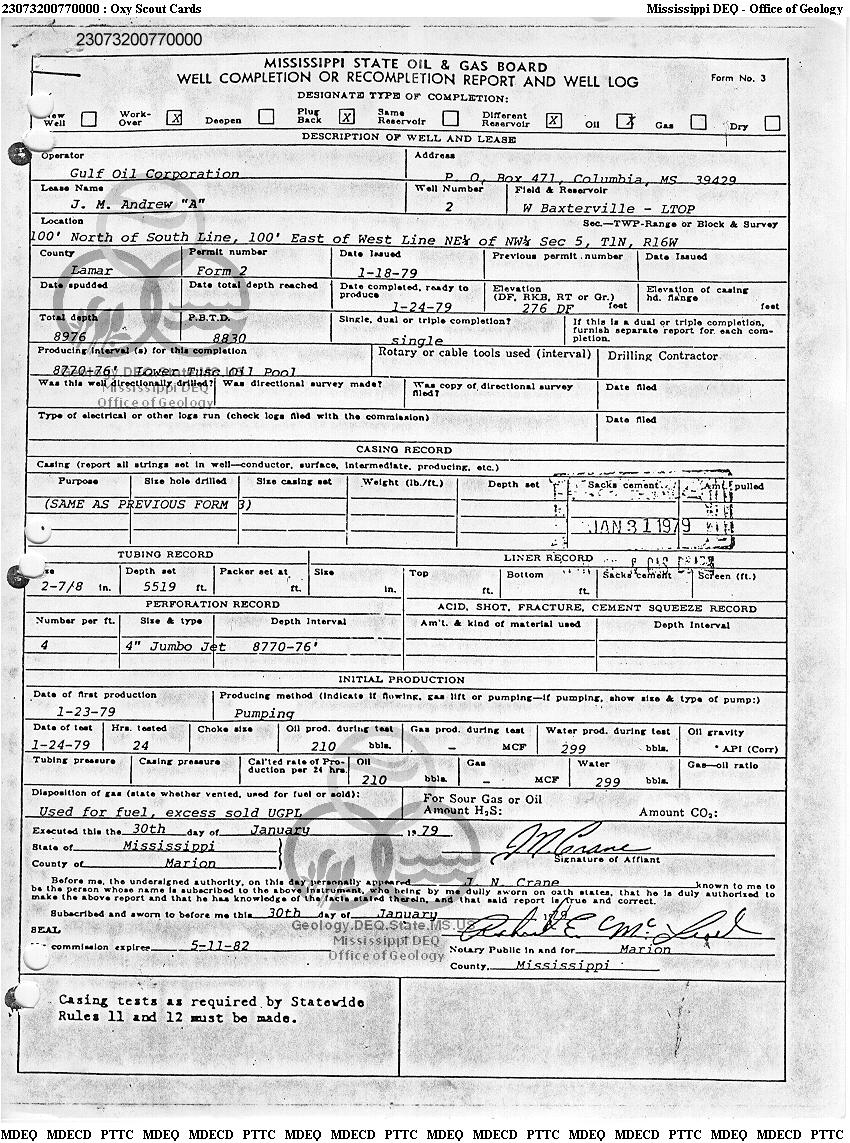 23073200770000 : Oxy Scout Cards Mississippi DEQ - Office of Geology
23073200770000
MISSISSIPPI STATE OIL & GAS BOARD
WELL COMPLETION OR RECOMPLETION REPORT AND WELL LOG Form No. 3
DESIGNATE TYPE OF COMPLETION:
Well Work-Over X Deepen Plug Back X Same Reservoir Different Reservoir X Oil X Gas Dry
DESCRIPTION OF WELL AND LEASE
Operator Address
Gulf Oil Corporation P. O. Box 471, Columbia, MS 39429
Lease Name Well Number Field & Reservoir
J. M. Andrew "A" 2 W Baxterville - LTOP
Location Sec.—TWP-Range or Block & Survey
100' North of South Line, 100' East of West Line NE¼ of NW¼ Sec 5, T1N, R16W
County Permit number Date Issued Previous permit number Date Issued
Lamar Form 2 1-18-79
Date spudded Date total depth reached Date completed, ready to produce Elevation (DF, RKB, RT or Gr.) feet Elevation of casing hd. flange feet
1-24-79 276 DF
Total depth P.B.T.D. Single, dual or triple completion? If this is a dual or triple completion, furnish separate report for each completion.
8976 8830 single
Producing interval (s) for this completion Rotary or cable tools used (interval) Drilling Contractor
8770-76' Lower Tusc Oil Pool
Was this well directionally drilled? Was directional survey made? Was copy of directional survey filed? Date filed
Mississippi DEQ
Office of Geology
Type of electrical or other logs run (check logs filed with the commission) Date filed
CASING RECORD
Casing (report all strings set in well—conductor, surface, intermediate, producing, etc.)
Purpose Size hole drilled Size casing set Weight (lb./ft.) Depth set Sacks cement Amt. pulled
(SAME AS PREVIOUS FORM 3)
JAN 31 1979
TUBING RECORD LINER RECORD
Depth set Packer set at Size Top Bottom Sacks cement Screen (ft.)
2-7/8 in. 5519 ft. ft. in. ft. ft.
PERFORATION RECORD ACID, SHOT, FRACTURE, CEMENT SQUEEZE RECORD
Number per ft. Size & type Depth Interval Am't. & kind of material used Depth Interval
4 4" Jumbo Jet 8770-76'
INITIAL PRODUCTION
Date of first production Producing method (indicate if flowing, gas lift or pumping—if pumping, show size & type of pump:)
1-23-79 Pumping
Date of test Hrs. tested Choke size Oil prod. during test Gas prod. during test Water prod. during test Oil gravity
1-24-79 24 210 bbls. - MCF 299 bbls. ° API (Corr)
Tubing pressure Casing pressure Cal'ted rate of Production per 24 hrs. Oil Gas Water Gas—oil ratio
210 bbls. - MCF 299 bbls.
Disposition of gas (state whether vented, used for fuel or sold): For Sour Gas or Oil
Used for fuel, excess sold UGPL Amount H2S: Amount CO2:
Executed this the 30th day of January 1979
State of Mississippi J N Crane
County of Marion Signature of Affiant
Before me, the undersigned authority, on this day personally appeared J. N. Crane known to me to
be the person whose name is subscribed to the above instrument, who being by me duly sworn on oath states, that he is duly authorized to
make the above report and that he has knowledge of the facts stated therein, and that said report is true and correct.
Subscribed and sworn to before me this 30th day of January, 1979
SEAL Geology.DEQ.State.MS.US
commission expires 5-11-82 Notary Public in and for Marion
Mississippi DEQ
Office of Geology
County, Mississippi
Casing tests as required by Statewide
Rules 11 and 12 must be made.
MDEQ MDECD PTTC MDEQ MDECD PTTC MDEQ MDECD PTTC MDEQ MDECD PTTC MDEQ MDECD PTTC MDEQ MDECD PTTC